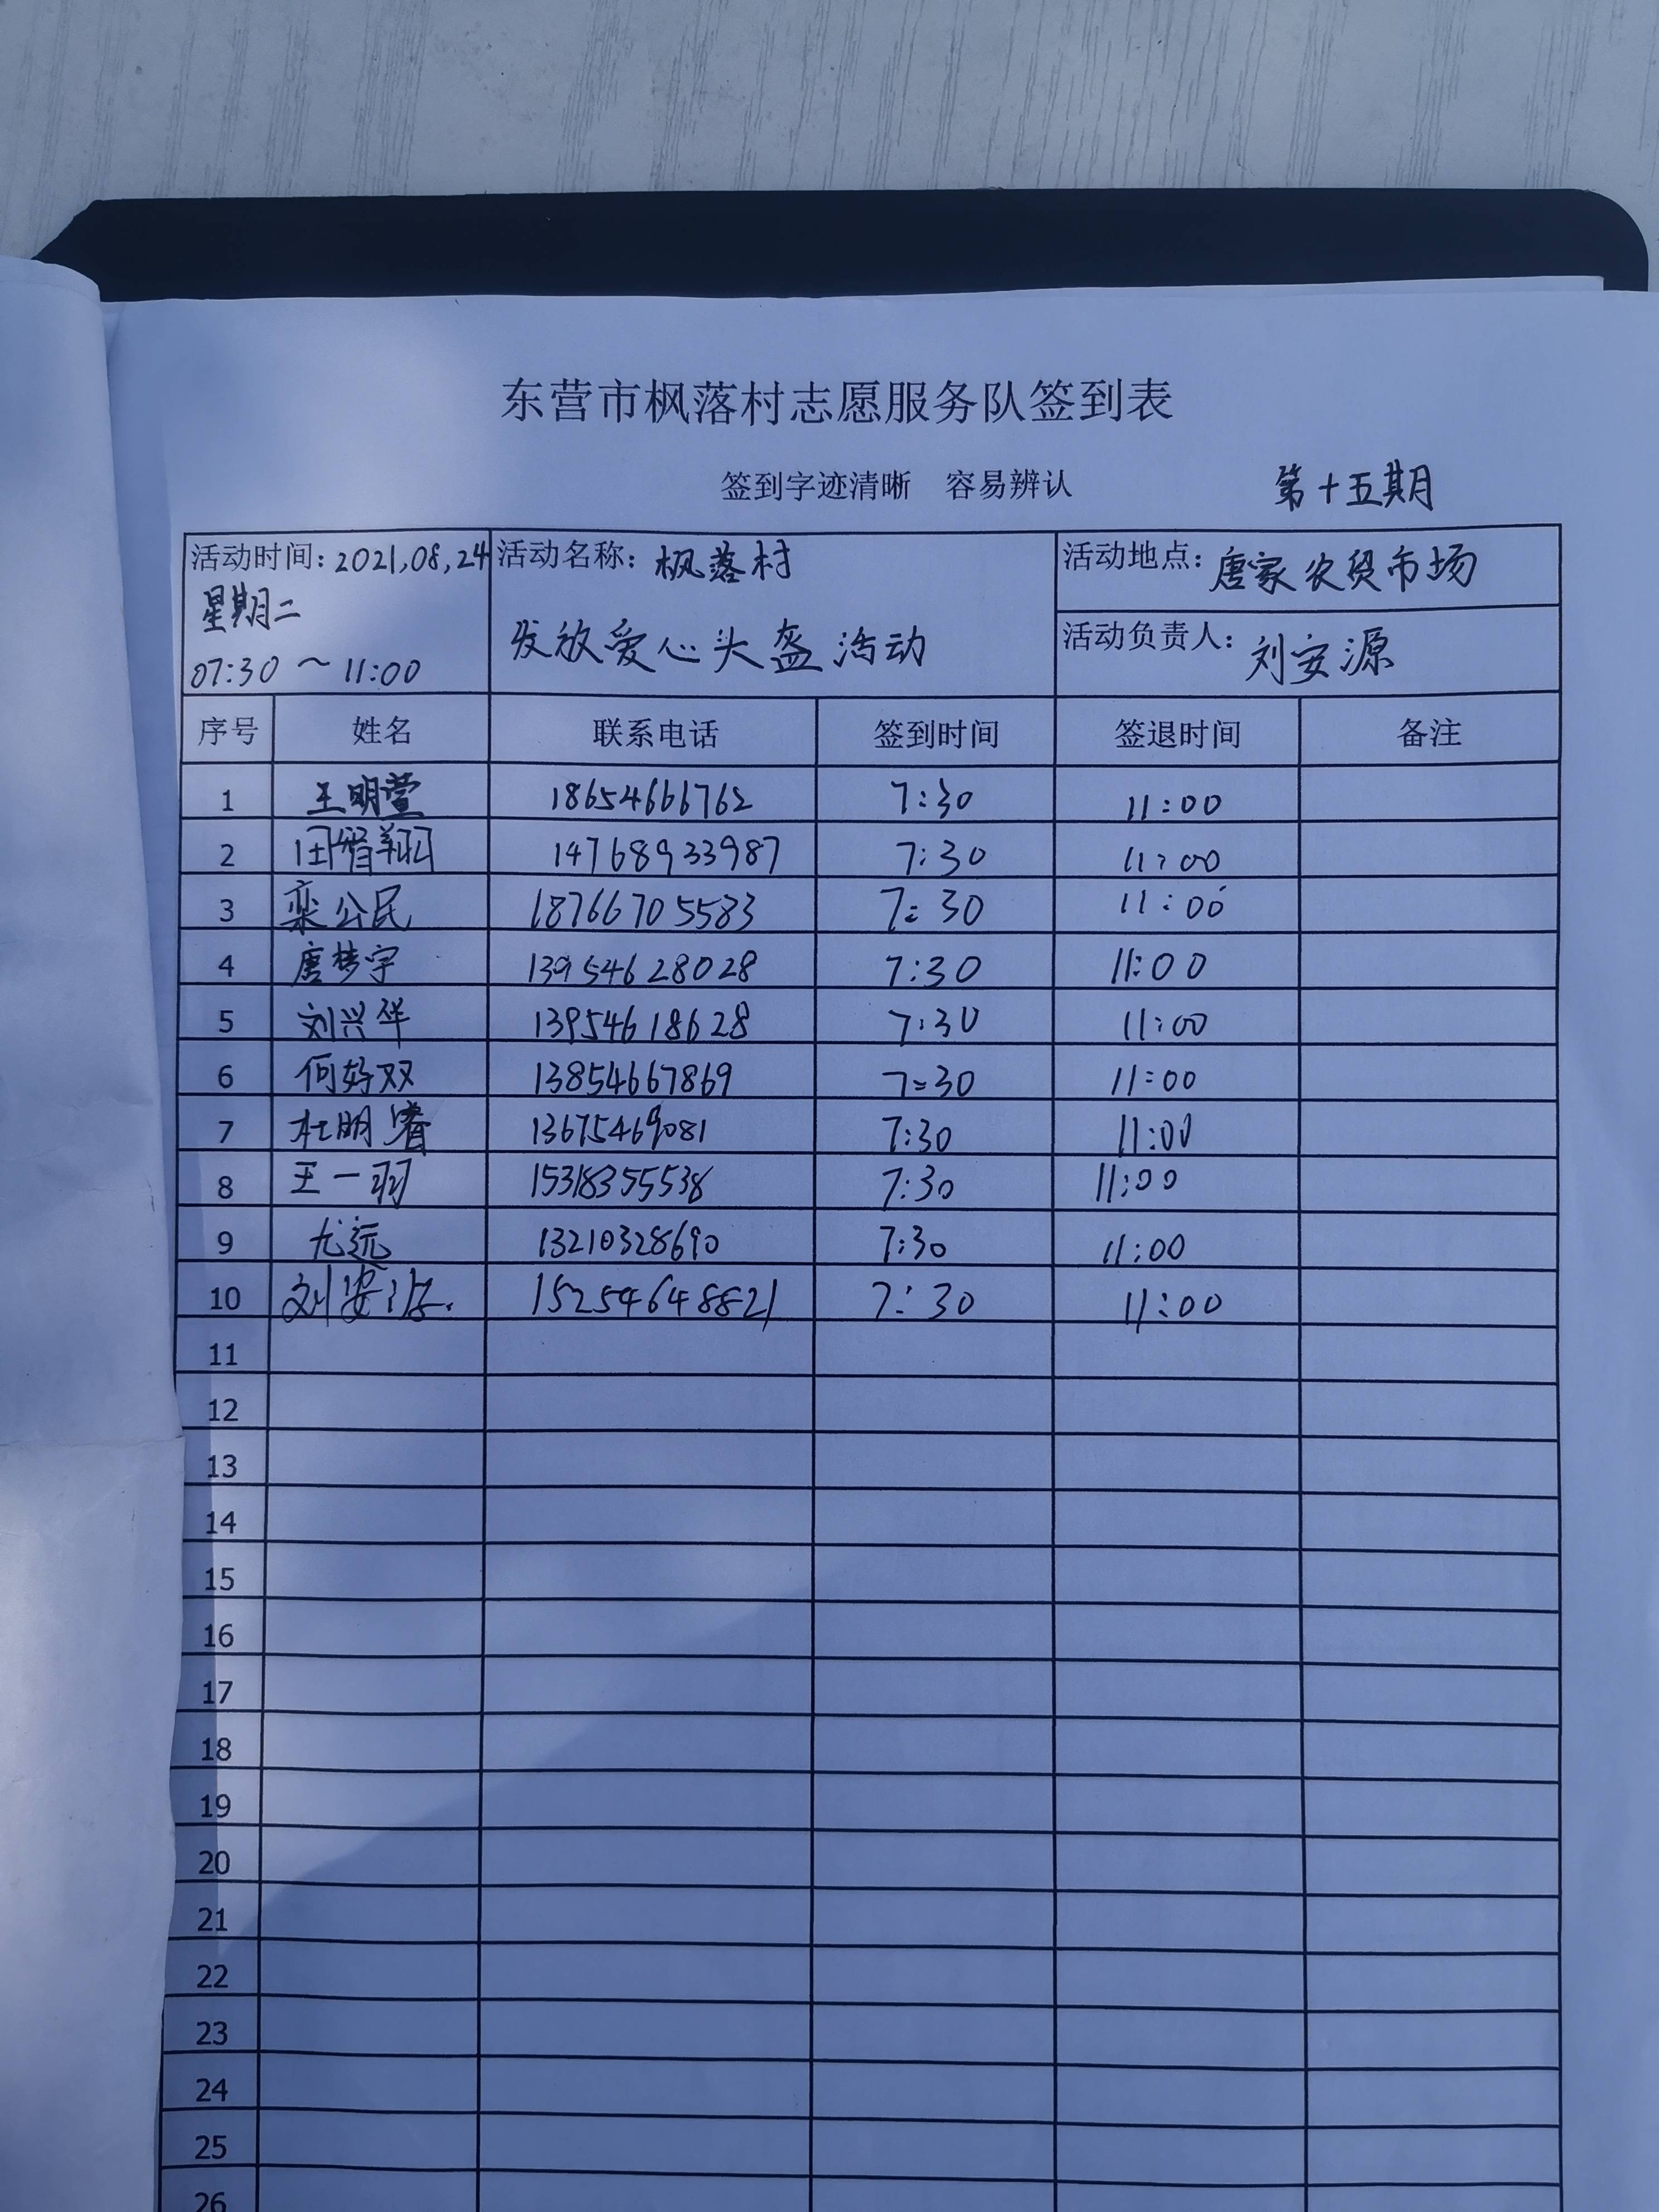 东营市枫落村志愿服务队签到表
签到字迹清晰 容易辨认 第十五期
活动时间：2021,08,24 活动名称：枫落村 活动地点：唐家农贸市场
星期二 发放爱心头盔活动 活动负责人：刘安源
07:30 ～ 11:00
序号 姓名 联系电话 签到时间 签退时间 备注
1 王明萱 18654666762 7:30 11:00
2 田智翔 14768933987 7:30 11:00
3 栾公民 18766705583 7:30 11:00
4 唐梦宇 13954628028 7:30 11:00
5 刘兴华 13954618628 7:30 11:00
6 何好双 13854667869 7:30 11:00
7 杜明睿 13675469081 7:30 11:00
8 王一羽 15318355538 7:30 11:00
9 尤远 13210328690 7:30 11:00
10 刘安源 15254648821 7:30 11:00
11
12
13
14
15
16
17
18
19
20
21
22
23
24
25
26